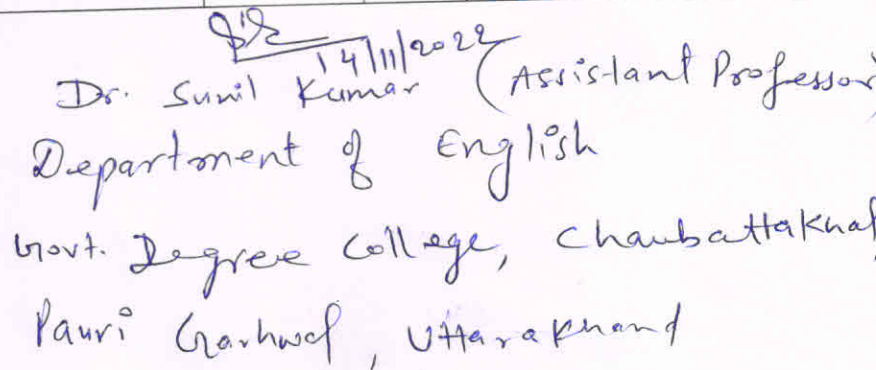 14/11/2022
Dr. Sunil Kumar (Assistant Professor)
Department of English
Govt. Degree College, Chaubattakhal,
Pauri Garhwal, Uttarakhand